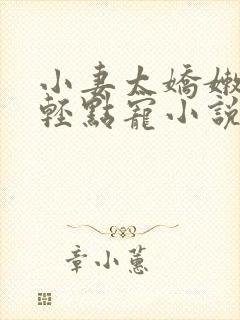 小妻太嬌嫩
輕點寵小説
章小蕙